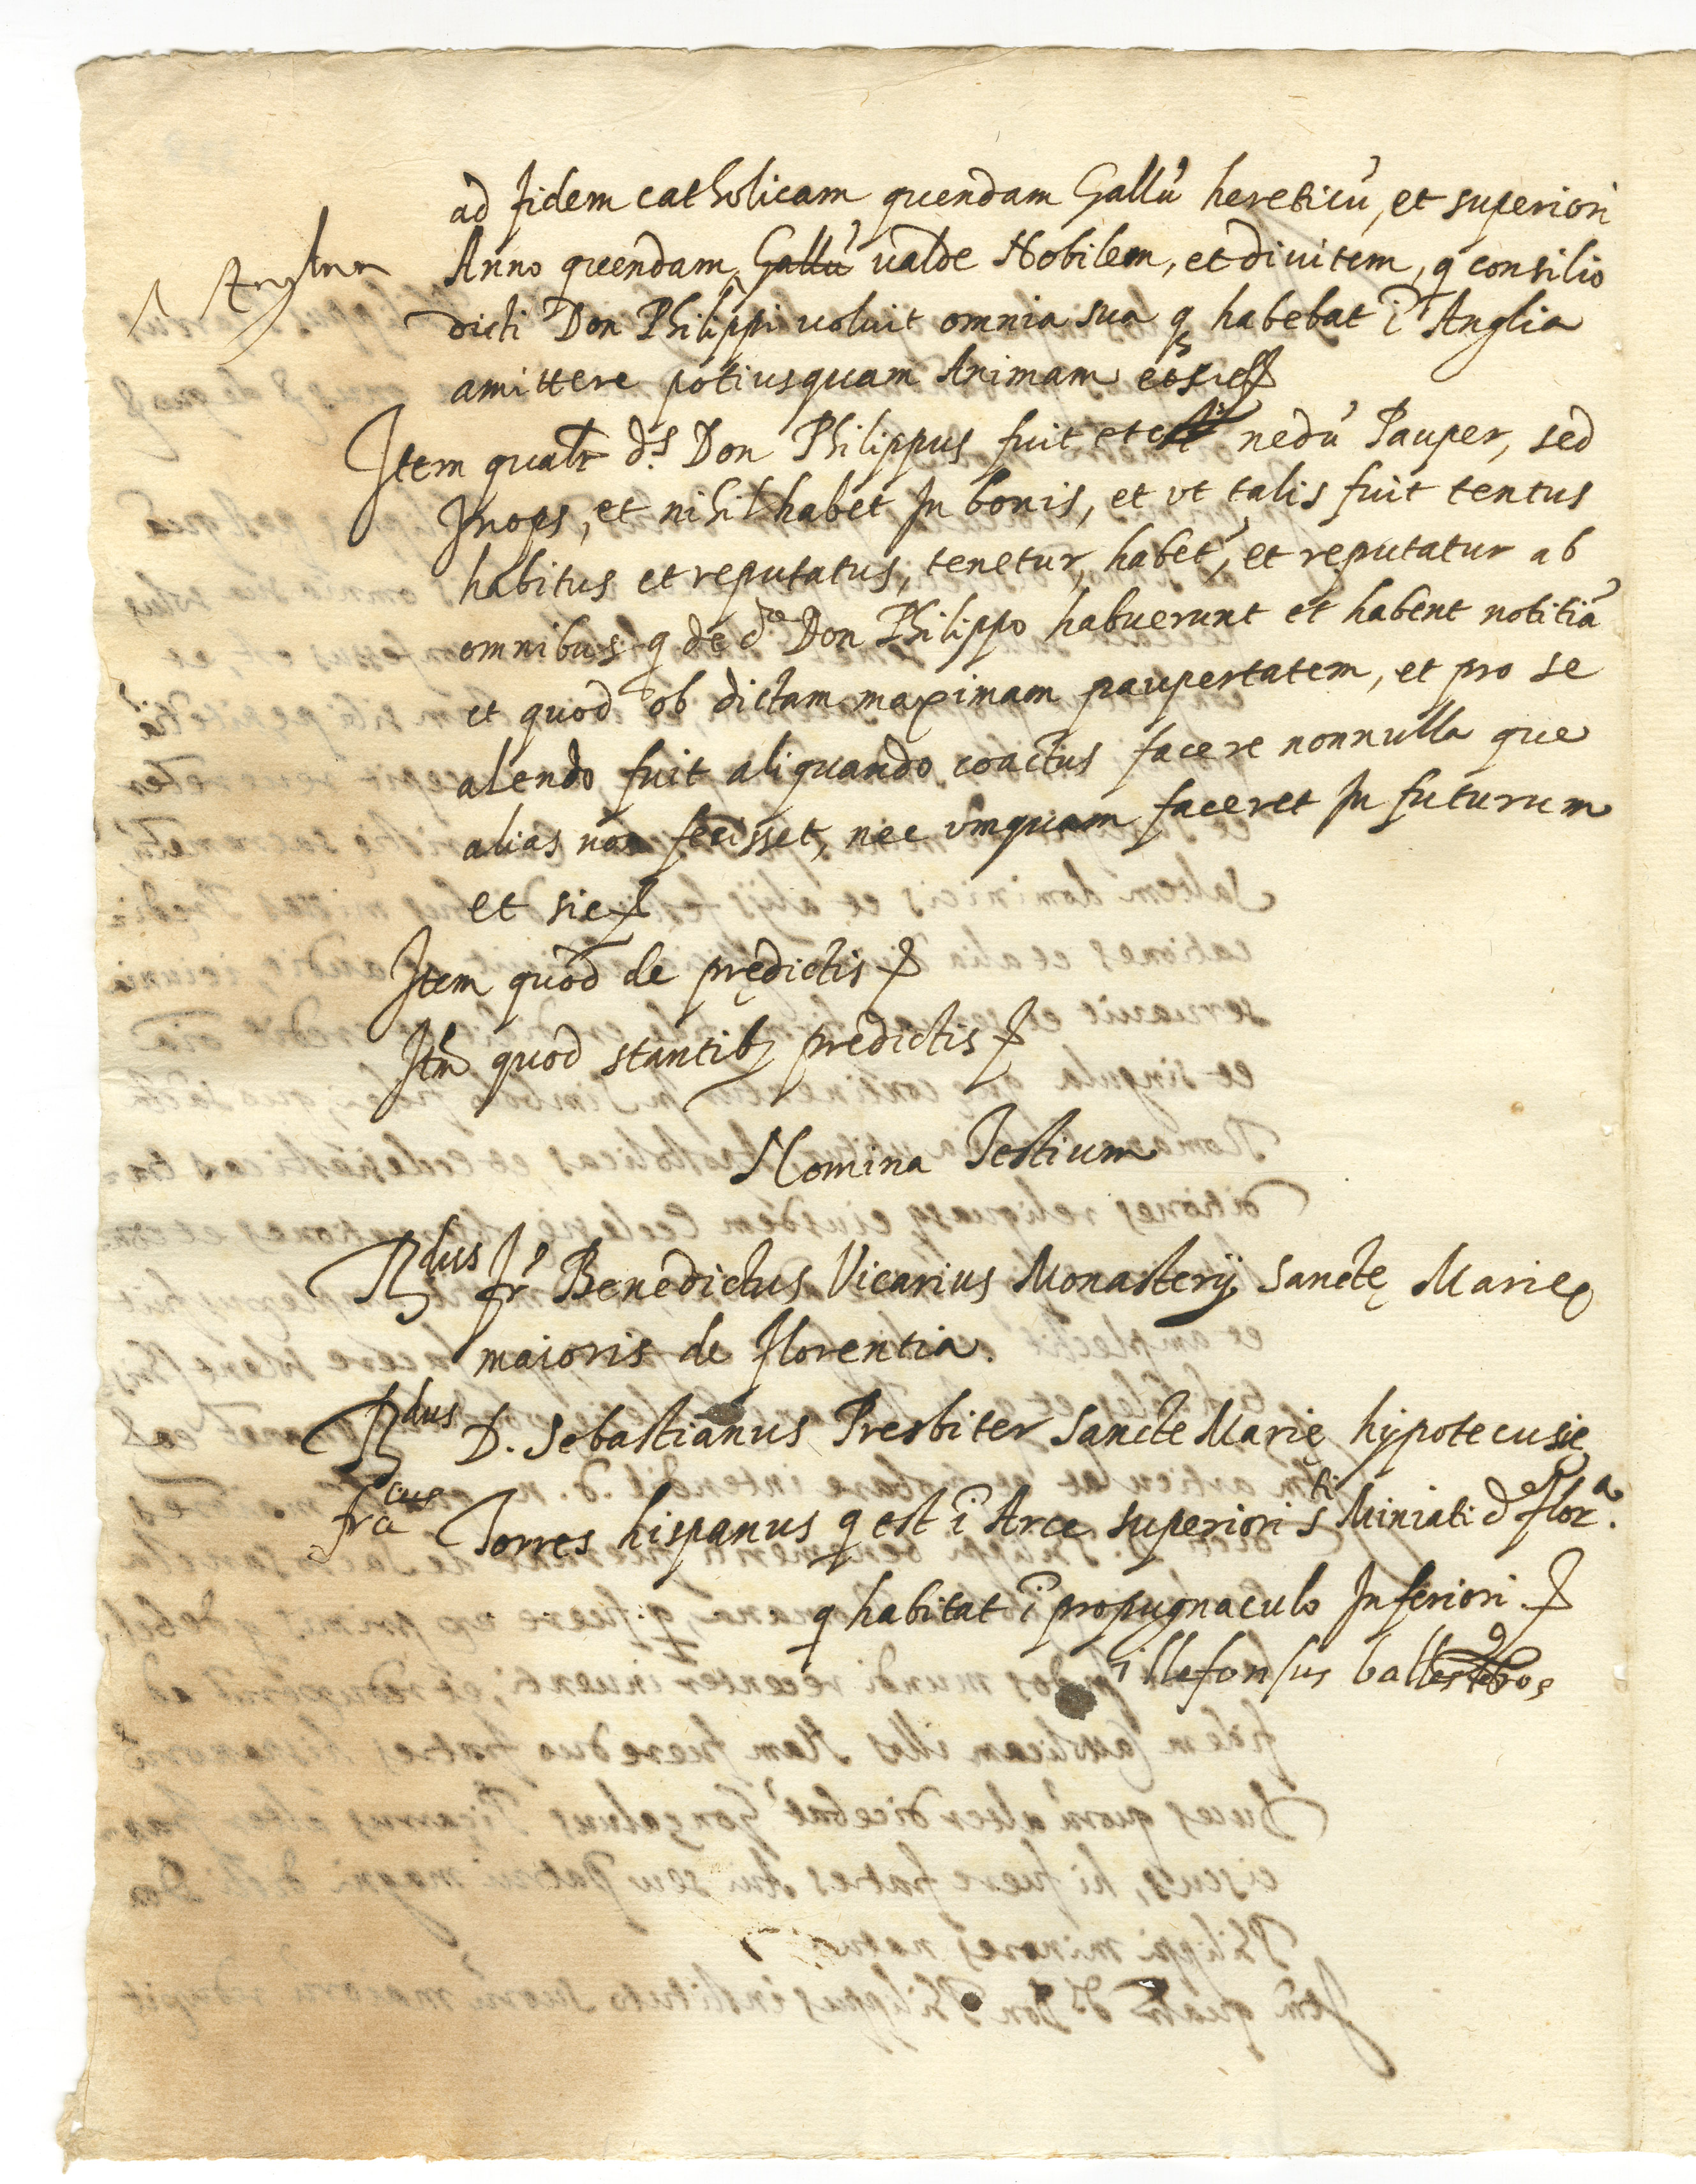 ad fidem catholicam quendam Gallũ hereticũ, et superiori
^ Anglum
Anno quendam ^ Gallũ valde Nobilem, et divitem, q consilio
dicti Don Philippi voluit omnia sua q habebat ĩ Anglia
amittere potiusquam Animam et sic
Item qualr d.s Don Philippus fuit et est nedũ Pauper, sed
Inops, et nihil habet In bonis, et vt talis fuit tentus
habitus et reputatus, tenetur, habet', et reputatur ab
omnibus q de d.o Don Philippo habuerunt et habent notitiã
et quod ob dictam maximam paupertatem, et pro se
alendo fuit aliquando coactus facere nonnulla que
alias non fecisset, nec vmquam faceret In futurum
et sic
Item quod de prędictis
Itm̃ quod stantib; predictis
Nomina Testium
R.dus fr̃ Benedictus Vicarius Monasterij Sanctę Marie
maioris de Florentia.
R.dus D. Sebastianus Presbiter Sancte Marię hypotecusie
fra.cus Torres hispanus q est ĩ Arce superiori s.ti Miniati d Flor.a
q habitat ĩ propugnaculo Inferiori.
illefonsus ballesteros